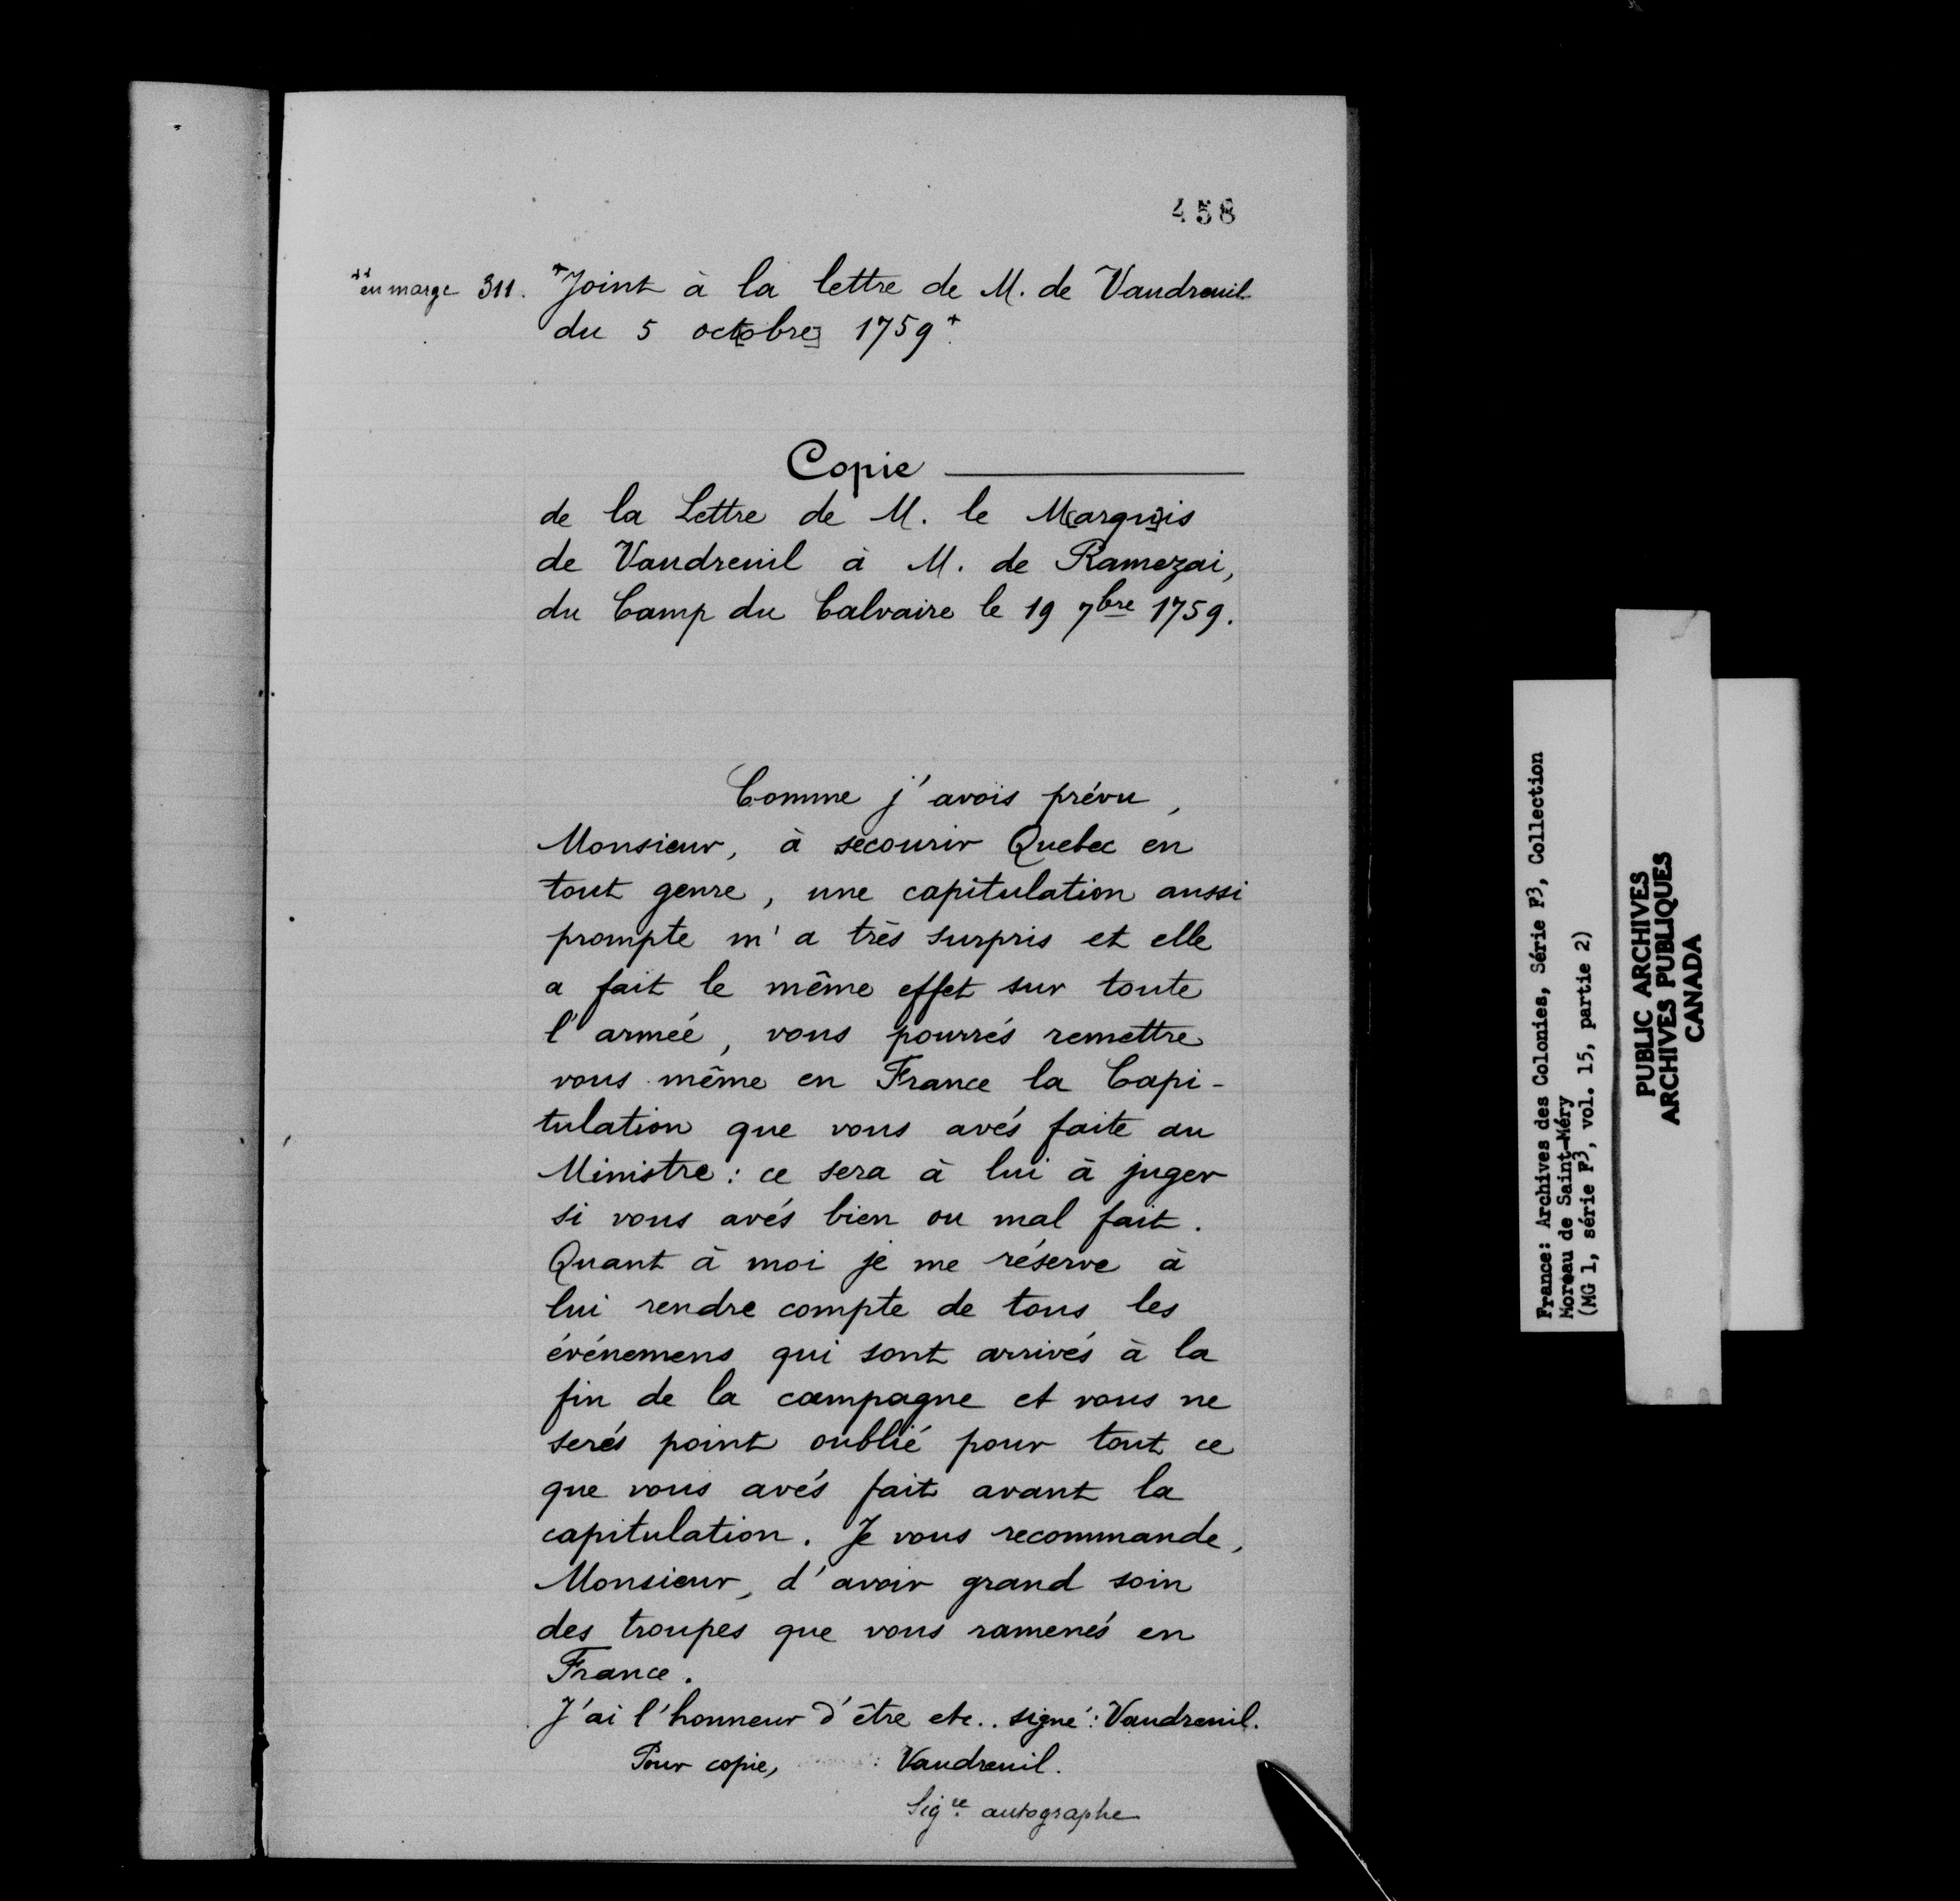 458
++ en marge 311. +Joint à la lettre de M. de Vaudreuil
du 5 oct[obre] 1759+.
Copie
de la Lettre de M. le M[arqu]is
de Vaudreuil à M. de Ramezai,
du Camp du Calvaire le 19 7bre 1759.
Comme j'avois prévu,
Monsieur, à secourir Quebec en
tout genre, une capitulation aussi
prompte m'a très surpris et elle
a fait le même effet sur toute
l'armée, vous pourrés remettre
vous même en France la Capi-
tulation que vous avés faite au
Ministre: ce sera à lui à juger
si vous avés bien ou mal fait.
Quant à moi je me réserve à
lui rendre compte de tous les
événemens qui sont arrivés à la
fin de la campagne et vous ne
serés point oublié pour tout ce
que vous avés fait avant la
capitulation. Je vous recommande,
Monsieur, d'avoir grand soin
des troupes que vous ramenés en
France.
J'ai l'honneur d'être etc.. signé: Vaudreuil.
Pour copie, : Vaudreuil.
Sigre autographe
France: Archives des Colonies, Série F3, Collection
Moreau de Saint-Méry
(MG 1, série F3, vol. 15, partie 2)
PUBLIC ARCHIVES
ARCHIVES PUBLIQUES
CANADA